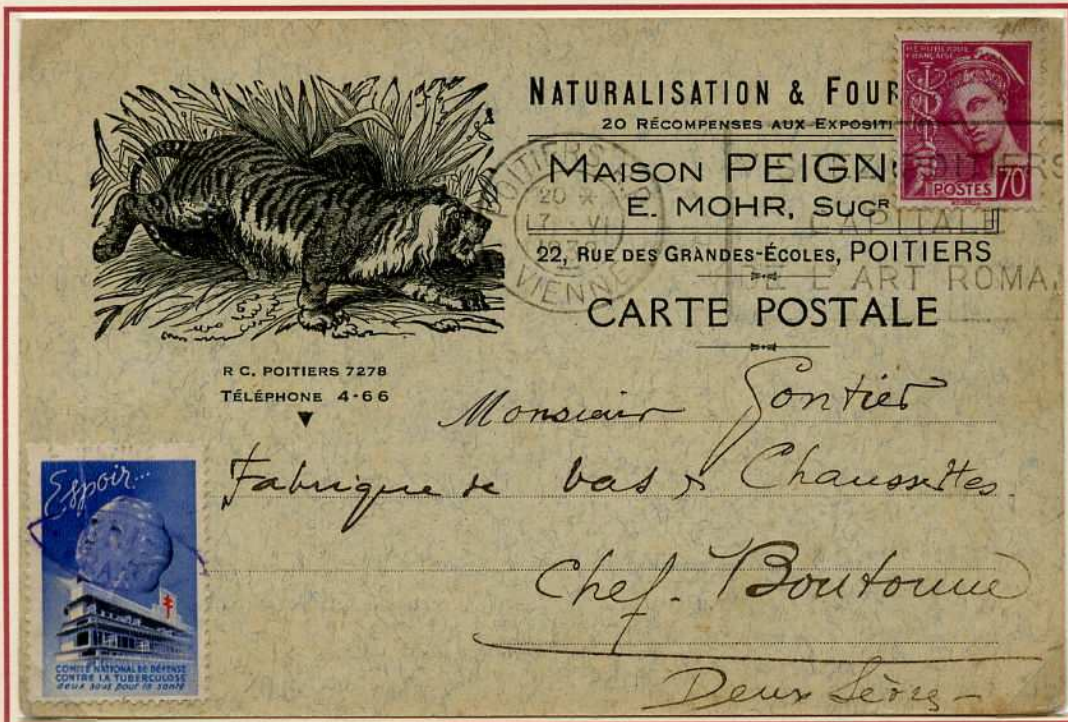 NATURALISATION & FOUR
20 RÉCOMPENSES AUX EXPOSITI
MAISON PEIGN
E. MOHR, SUCR
22, RUE DES GRANDES-ÉCOLES, POITIERS
CARTE POSTALE
R C. POITIERS 7278
TÉLÉPHONE 4-66
RÉPUBLIQUE
FRANÇAISE
POSTES 70
POITIERS
20 *
VI
VIENNE
POITIERS
CAPITALE
DE L'ART ROMA
Monsieur Gontier
Fabrique de bas & Chaussettes.
Chef-Boutonne
Deux Sèvres
Espoir...
COMITÉ NATIONAL DE DÉFENSE
CONTRE LA TUBERCULOSE
deux sous pour la santé